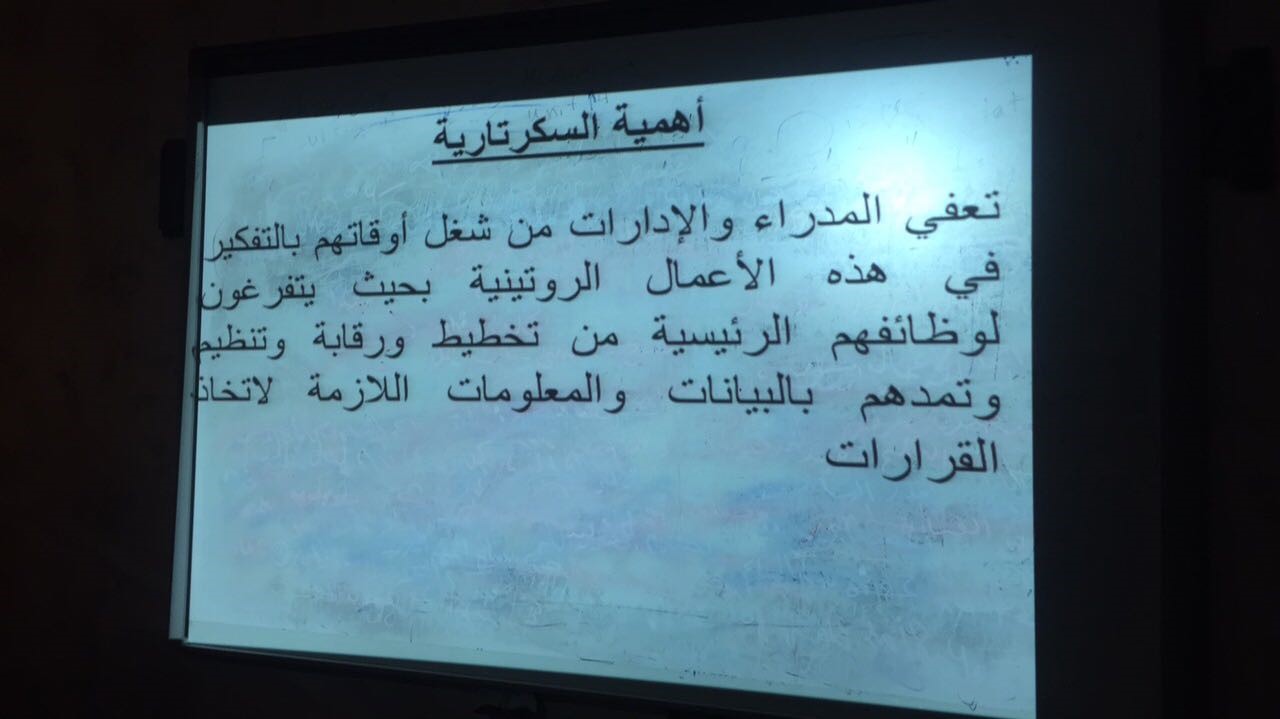 أهمية السكرتارية
تعفي المدراء والإدارات من شغل أوقاتهم بالتفكير
في هذه الأعمال الروتينية بحيث يتفرغون
لوظائفهم الرئيسية من تخطيط ورقابة وتنظيم
وتمدهم بالبيانات والمعلومات اللازمة لاتخاذ
القرارات